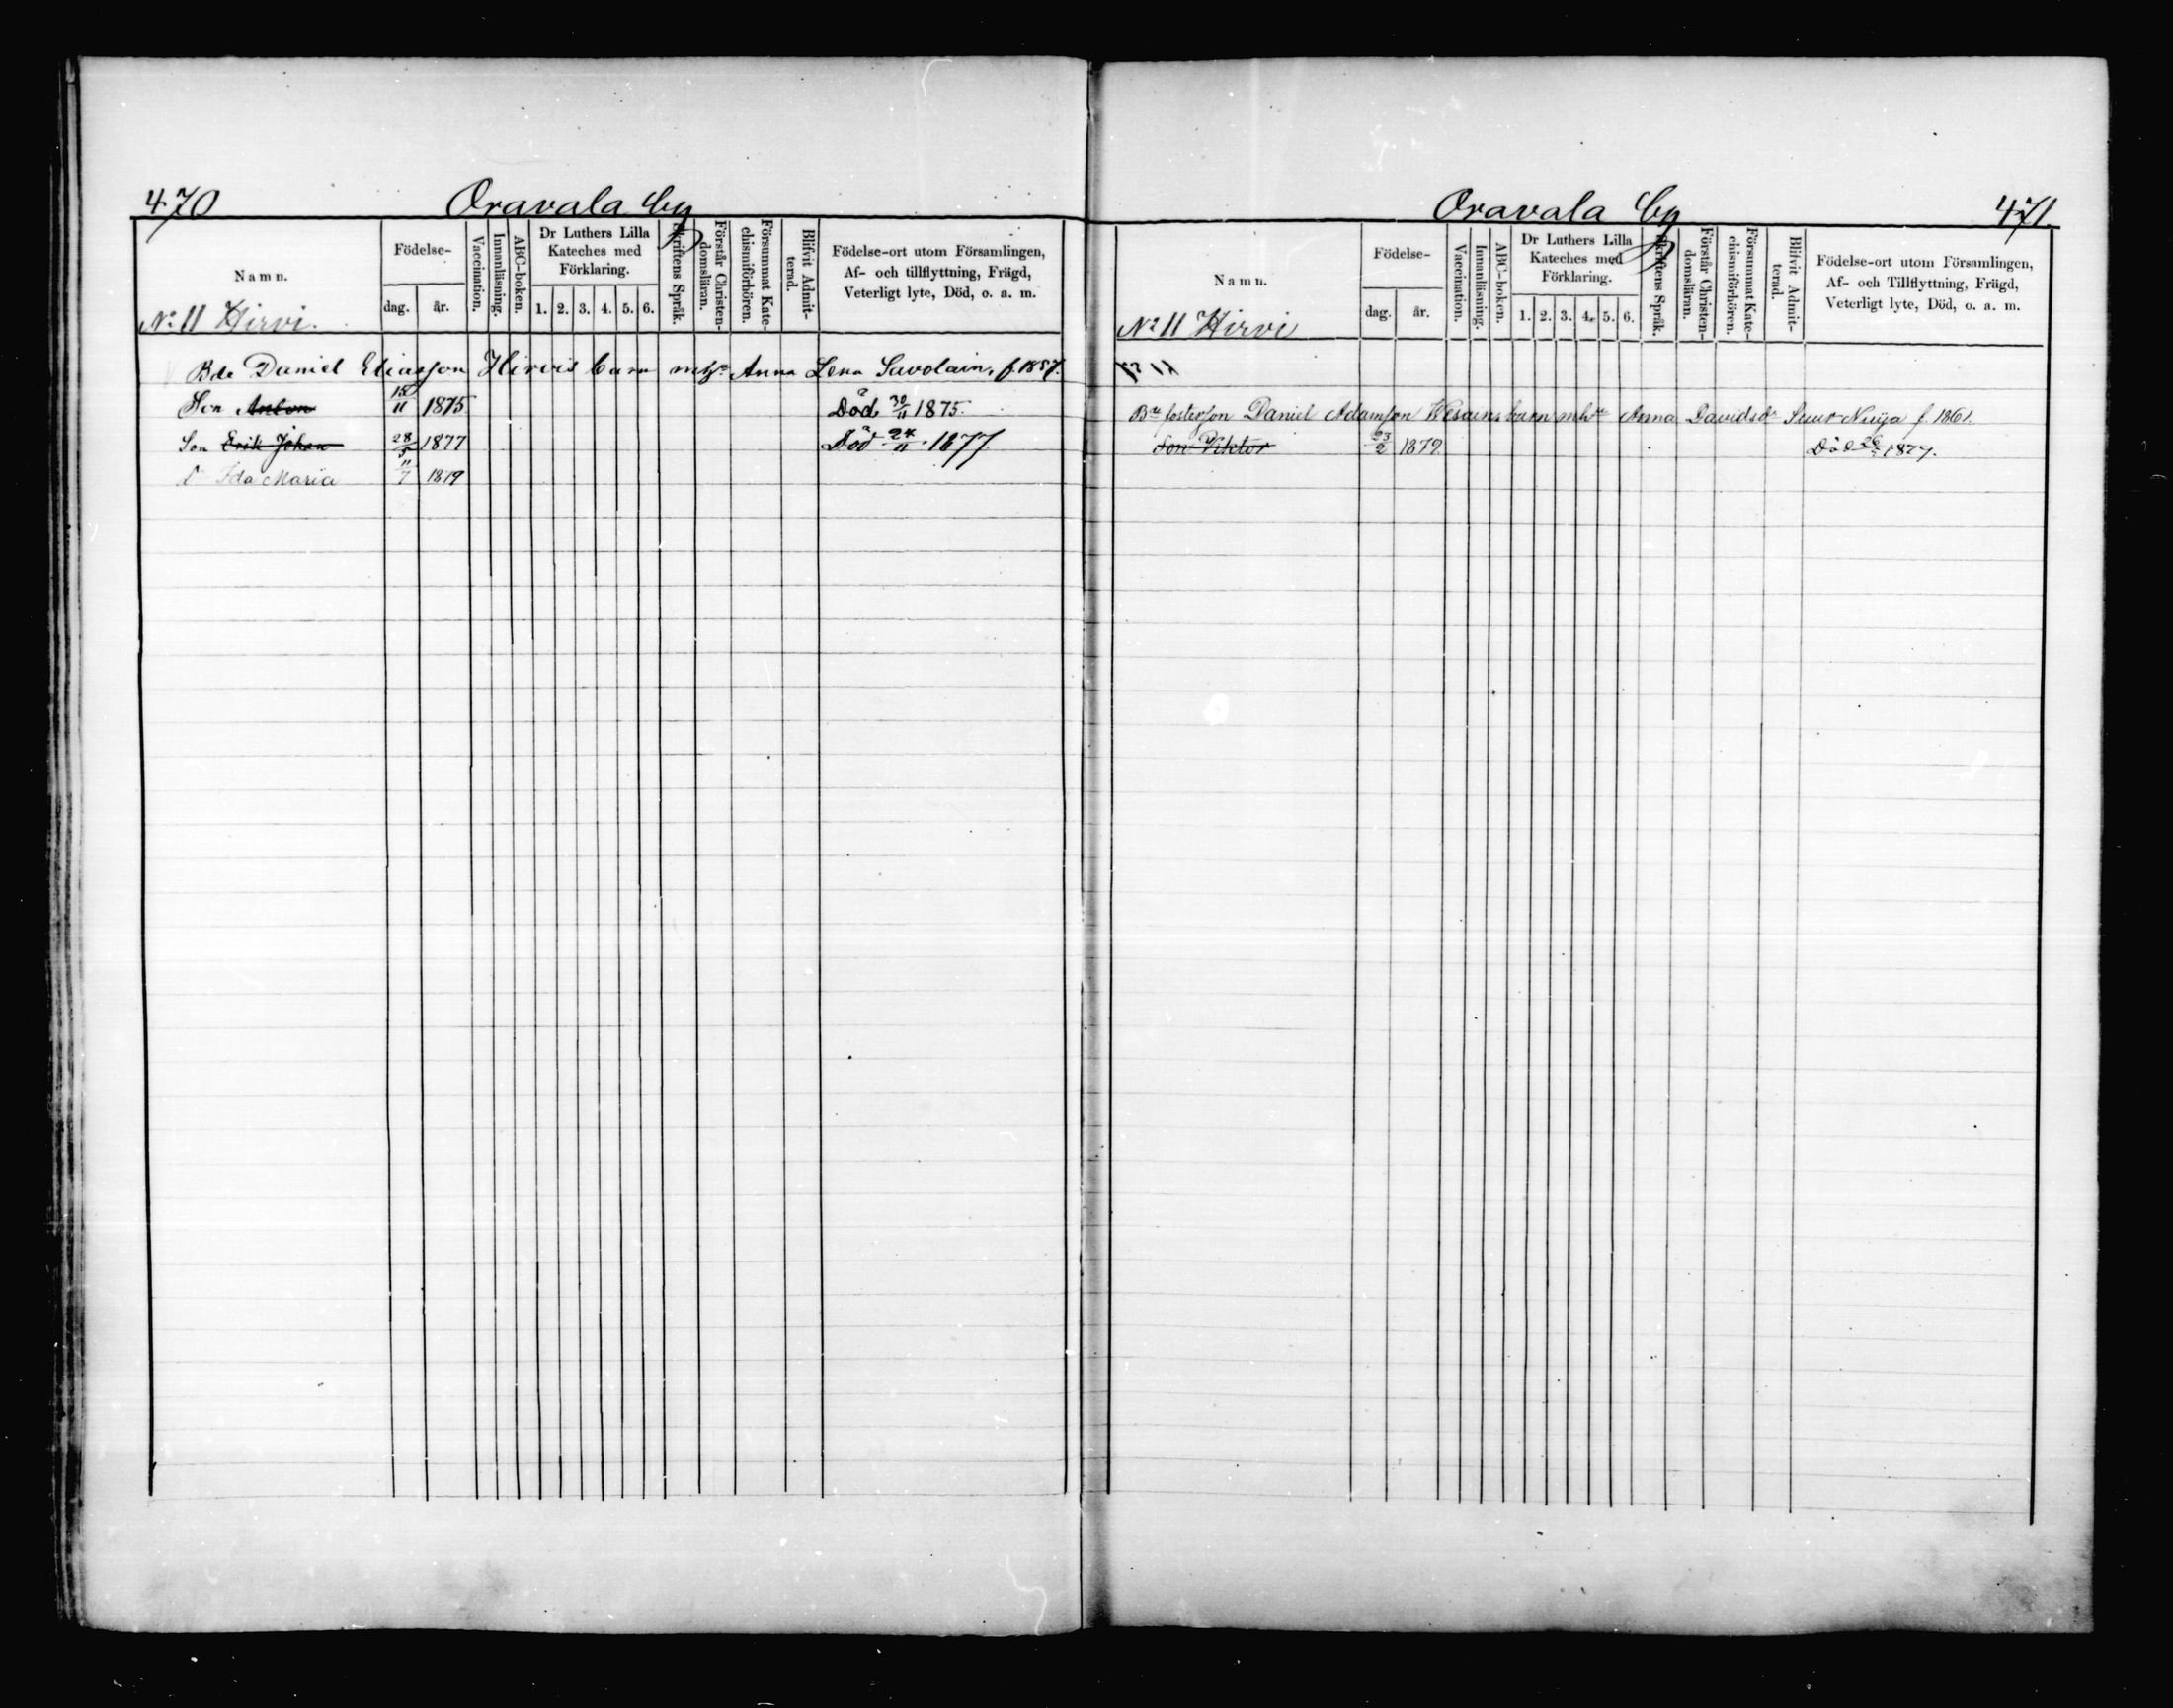 470 Oravala by
Namn. Födelse- dag. år. Vaccination. Innanläsning. ABC-boken. Dr Luthers Lilla Kateches med Förklaring. 1. 2. 3. 4. 5. 6. Skriftens Språk. Förstår Christendomsläran. Försummat Katechismiförhören. Blifvit Admitterad. Födelse-ort utom Församlingen, Af- och tillflyttning, Frägd, Veterligt lyte, Död, o. a. m.
No 11 Hirvi.
Bde Daniel Eliasson Hirvis barn Anna Lena Savolain, f. 1857.
Son Anton 11 1875 Död 30/11 1875.
Son Erik Johan 28/5 1877 Död 24/11 1877
Dr Ida Maria 11/7 1879
Oravala by 471.
Namn. Födelse- dag. år. Vaccination. Innanläsning. ABC-boken. Dr Luthers Lilla Kateches med Förklaring. 1. 2. 3. 4. 5. 6. Skriftens Språk. Förstår Christendomsläran. Försummat Katechismiförhören. Blifvit Admitterad. Födelse-ort utom Församlingen, Af- och Tillflyttning, Frägd, Veterligt lyte, Död, o. a. m.
No 11 Hirvi
fosterson Daniel Adamson barn Anna Davidsdr f. 1861.
Son Viktor 23/2 1879 Död